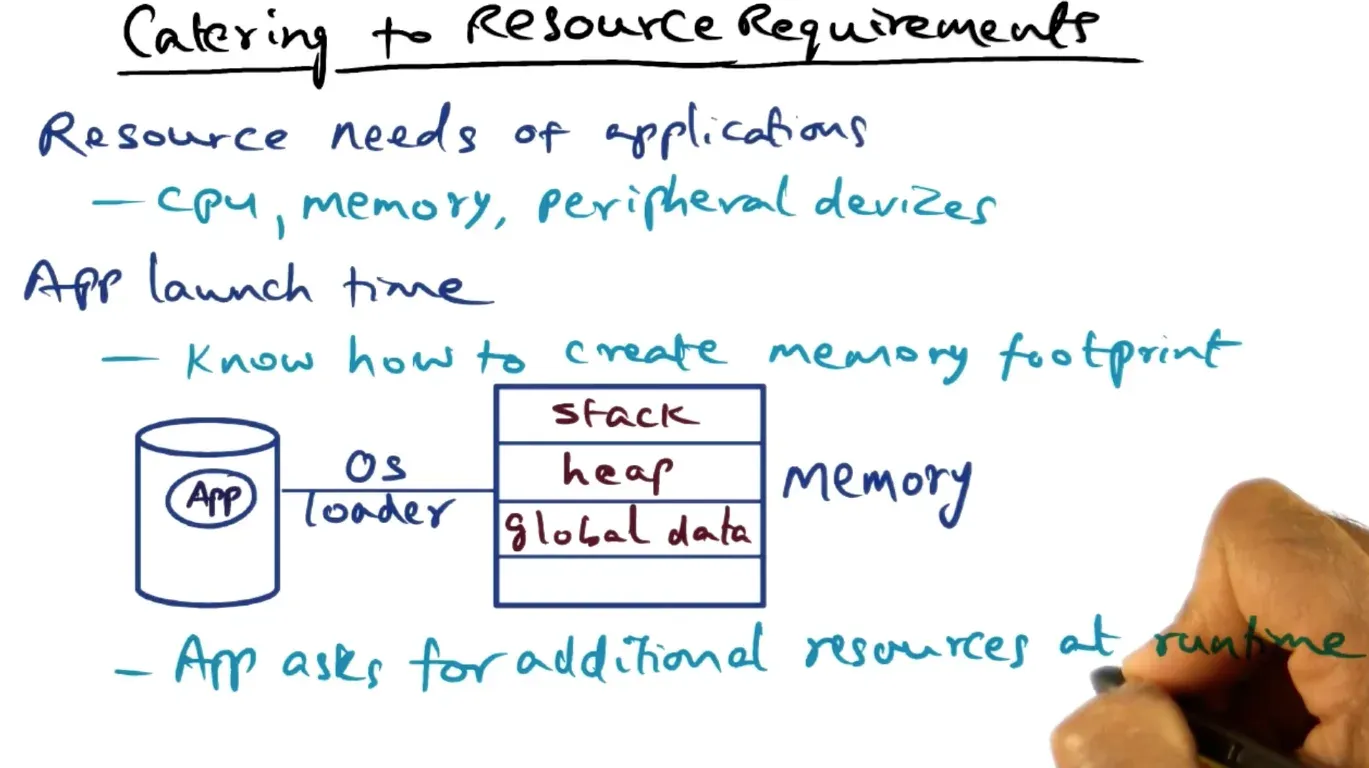 Catering to Resource Requirements
Resource needs of applications
— CPU, memory, peripheral devizes
App launch time
— Know how to create memory footprint
stack
heap
global data
App
OS
loader
Memory
— App asks for additional resources at runtime